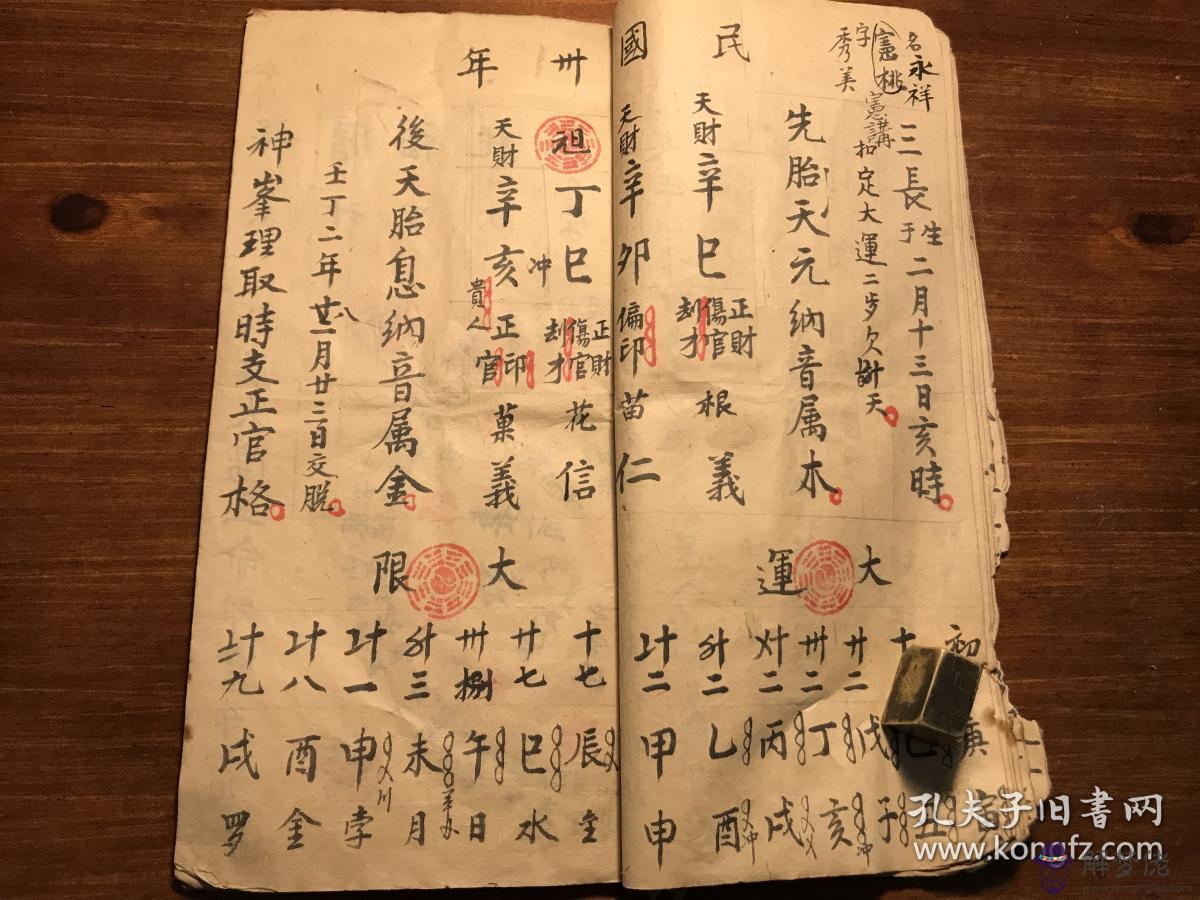 名永祥
憲桃
字秀美
三長生于二月十三日亥時
憲講扣定大運二歩欠卅天
先胎天元納音属木
民國卅年
天財辛巳正財傷官刦才根義
天財辛卯偏印苗仁
祖丁巳正財傷官刦才花信
冲
天財辛亥貴人正印官菓義
後天胎息納音属金
壬丁二年十一月廿二日交脱
神峯理取時支正官格
大運
初庚
十
廿二戊子
卅二丁亥冲
乂十二丙戌
二乙酉冲
二甲申
大限
十七辰
廿七巳水
卅捌午日
三未月
一申孛
八酉金
九戌罗
孔夫子旧书网
www.kongfz.com
解梦佬